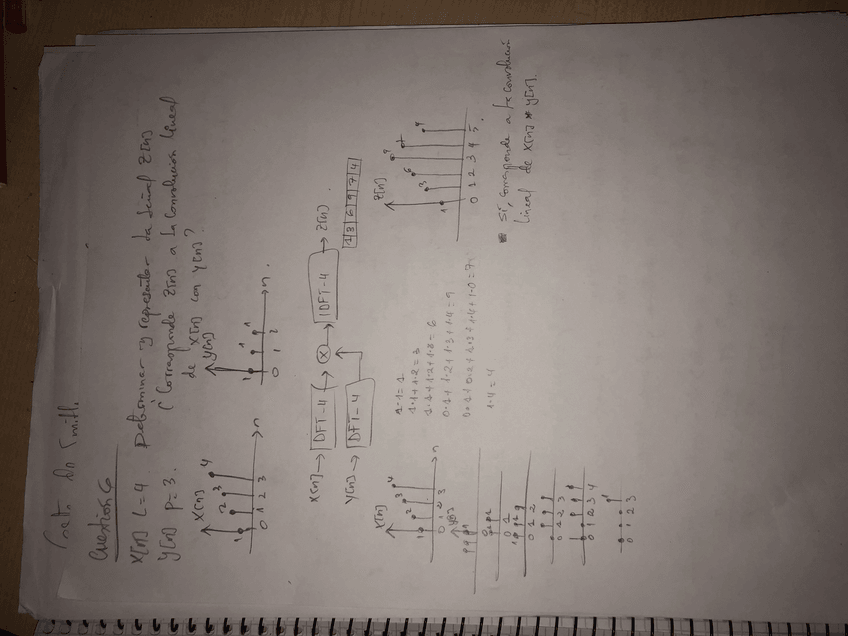 Cuestion 6
X[n] L=4 Determinar y representar la señal Z[n]
Y[n] P=3. ¿Corresponde Z[n] a la convolución lineal
de X[n] con Y[n]?
X[n]
1 2 3 4
0 1 2 3 n
Y[n]
1 1 1
0 1 2 n
X[n] → DFT-4 → X → IDFT-4 → Z[n]
Y[n] → DFT-4
1 3 6 9 7 4
X[n]
1 2 3 4
0 1 2 3 n
Y[n]
0 1
0 1 2
0 1 2 3
0 1 2 3 4
0 1 2 3
1·1=1
1·1+1·2=3
1·1+1·2+1·3=6
0·1+1·2+1·3+1·4=9
0·1+0·2+1·3+1·4+1·0=7
1·4=4
Z[n]
1 3 6 9 7 4
0 1 2 3 4 5
* Sí, corresponde a la convolución
lineal de X[n] * Y[n].